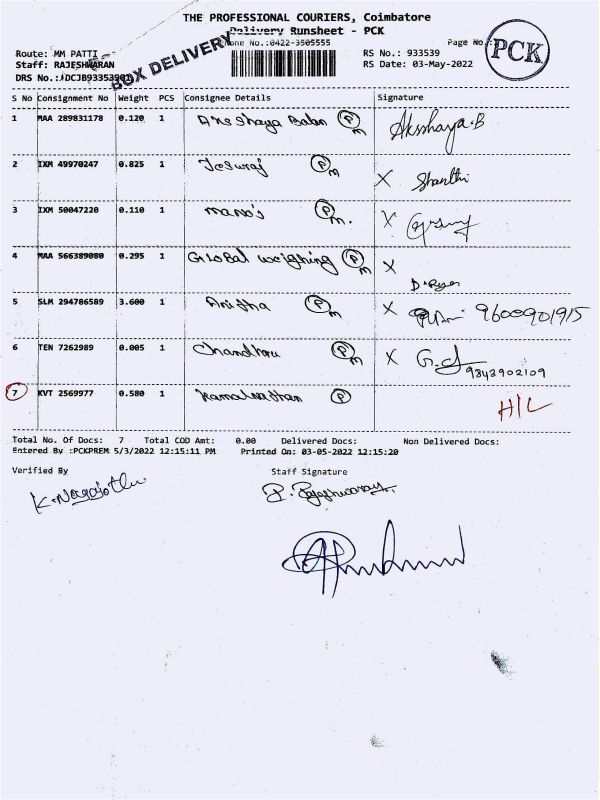 THE PROFESSIONAL COURIERS, Coimbatore
Delivery Runsheet - PCK
Phone No.:0422-3505555
Page No.:
PCK
BOX DELIVERY
Route: MM PATTI
Staff: RAJESHWARAN
RS No.: 933539
RS Date: 03-May-2022
DRS No.:
S No Consignment No Weight PCS Consignee Details Signature
1 MAA 289831178 0.120 1 Akshaya Baba P m Akshaya.B
2 IXM 49970247 0.825 1 Jesuraj P m X Shanthi
3 IXM 50047220 0.110 1 mano's P m. X
4 MAA 566389080 0.295 1 Global weighing P m X
5 SLM 294786589 3.600 1 Anitha P m X 9600901915
6 TEN 7262989 0.005 1 Chandru P m X 9843902109
7 KVT 2569977 0.580 1 P H/L
Total No. Of Docs: 7 Total COD Amt: 0.00 Delivered Docs: Non Delivered Docs:
Entered By :PCKPREM 5/3/2022 12:15:11 PM Printed On: 03-05-2022 12:15:20
Verified By Staff Signature